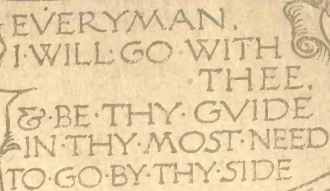 EVERYMAN,
I·WILL·GO WITH
THEE,
&·BE·THY·GVIDE
IN·THY·MOST·NEED
TO·GO·BY·THY·SIDE